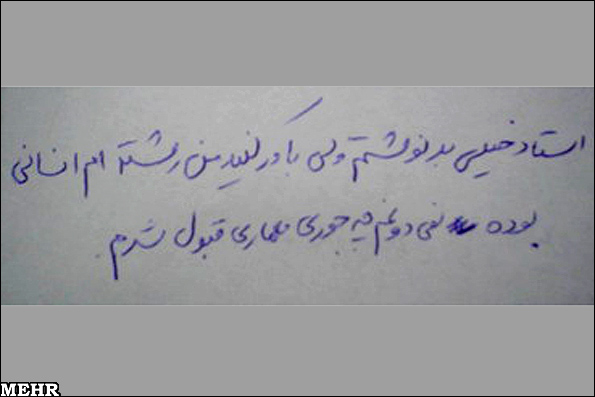 استاد خیلی بد نوشتم ولی باور کنید من رشته ام انسانی
بوده نمی دونم چه جوری معماری قبول شدم.
MEHR